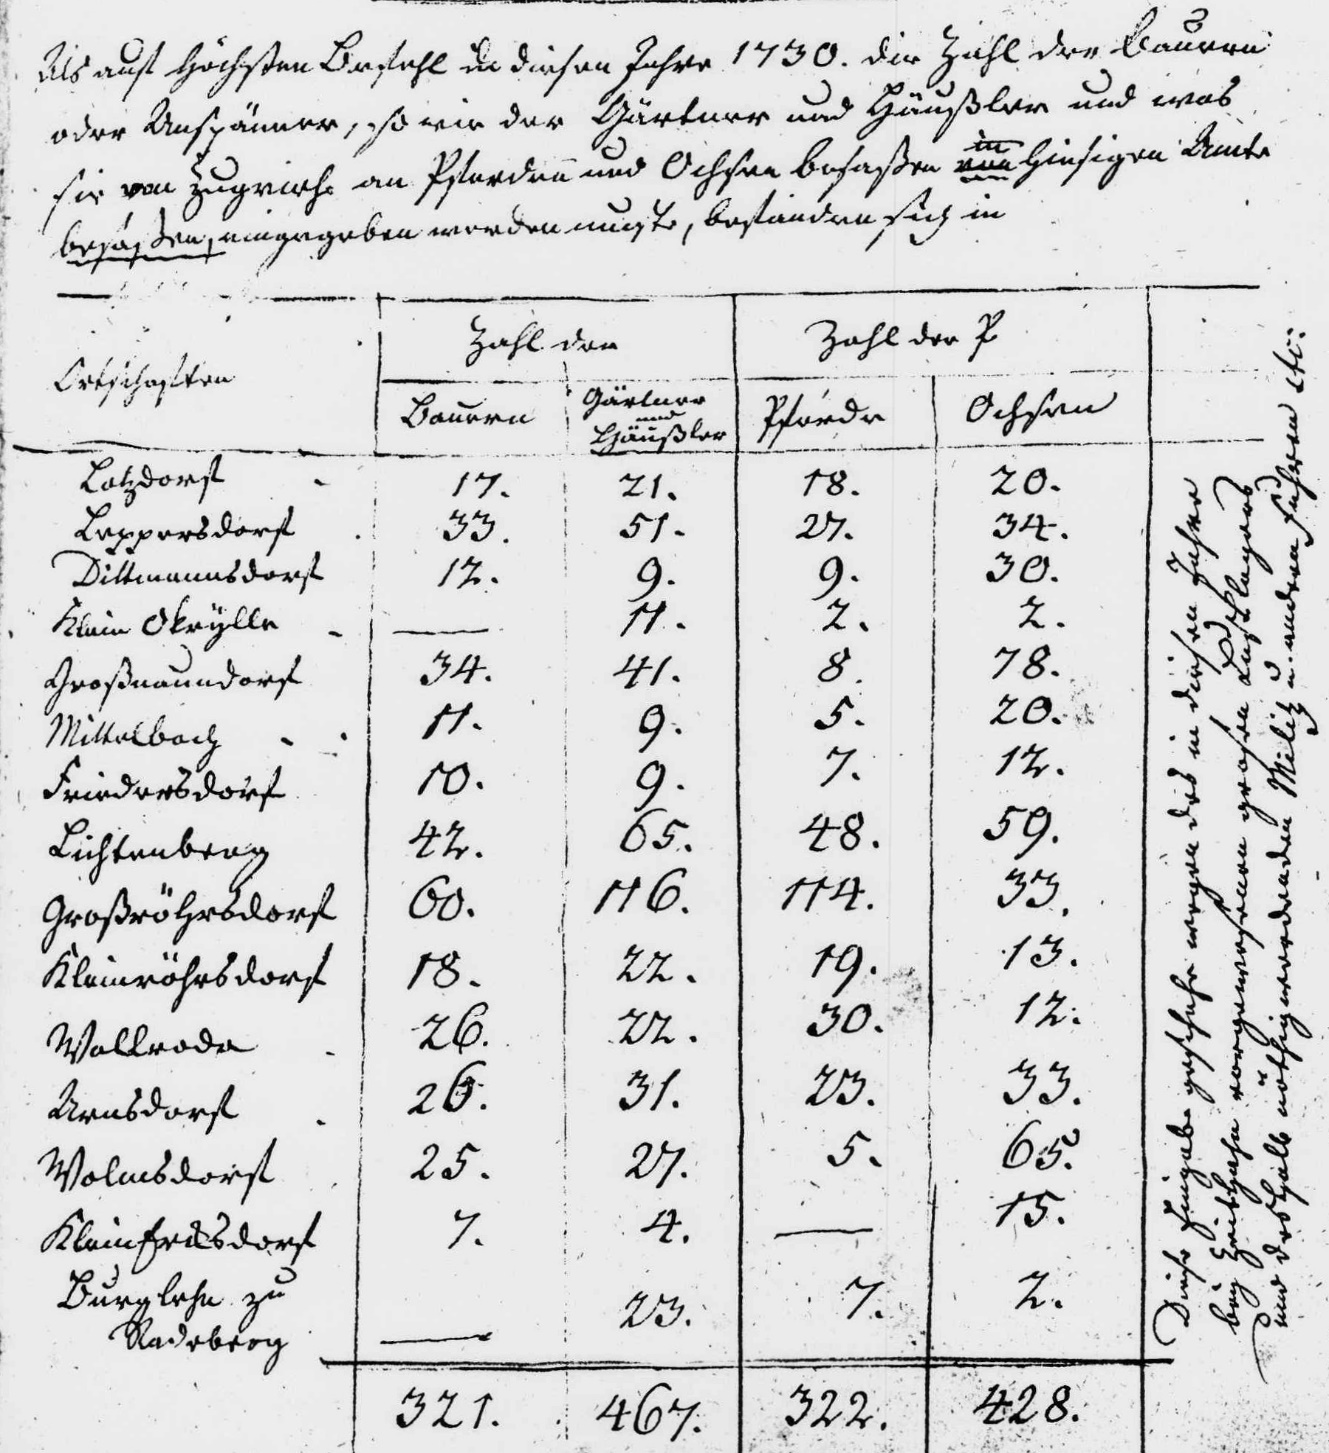 Als auf Höchsten Befehl in diesen Jahre 1730. die Zahl der Bauern
oder Anspänner, so wie der Gärtner und Häußler und was
sie von Zugviehe an Pferden und Ochsen besaßen in hiesigen Amte
besaßen, eingegeben werden muste, bestanden sich in
Ortschaften
Zahl der
Zahl der P
Bauern
Gärtner und Häußler
Pferde
Ochsen
Lotzdorf 17. 21. 18. 20.
Leppersdorf 33. 51. 27. 34.
Dittmannsdorf 12. 9. 9. 30.
Klein Okrylle — 11. 2. 2.
Großnaundorf 34. 41. 8. 78.
Mittelbach 11. 9. 5. 20.
Friedersdorf 10. 9. 7. 12.
Lichtenberg 42. 65. 48. 59.
Großröhrsdorf 60. 116. 114. 33.
Kleinröhrsdorf 18. 22. 19. 13.
Wallroda 26. 22. 30. 12.
Arnsdorf 26. 31. 23. 33.
Wolmsdorf 25. 27. 5. 65.
Klein 7. 4. — 15.
Burglehn zu
Radeberg — 23. 7. 2.
321. 467. 322. 428.
Diese Eingabe geschehe wegen des in diesen Jahre
bey Zeithayn vorgewesenen grosen Lustlagers
und deshalb nöthig werdenden Militz u. andern Fuhren etc: